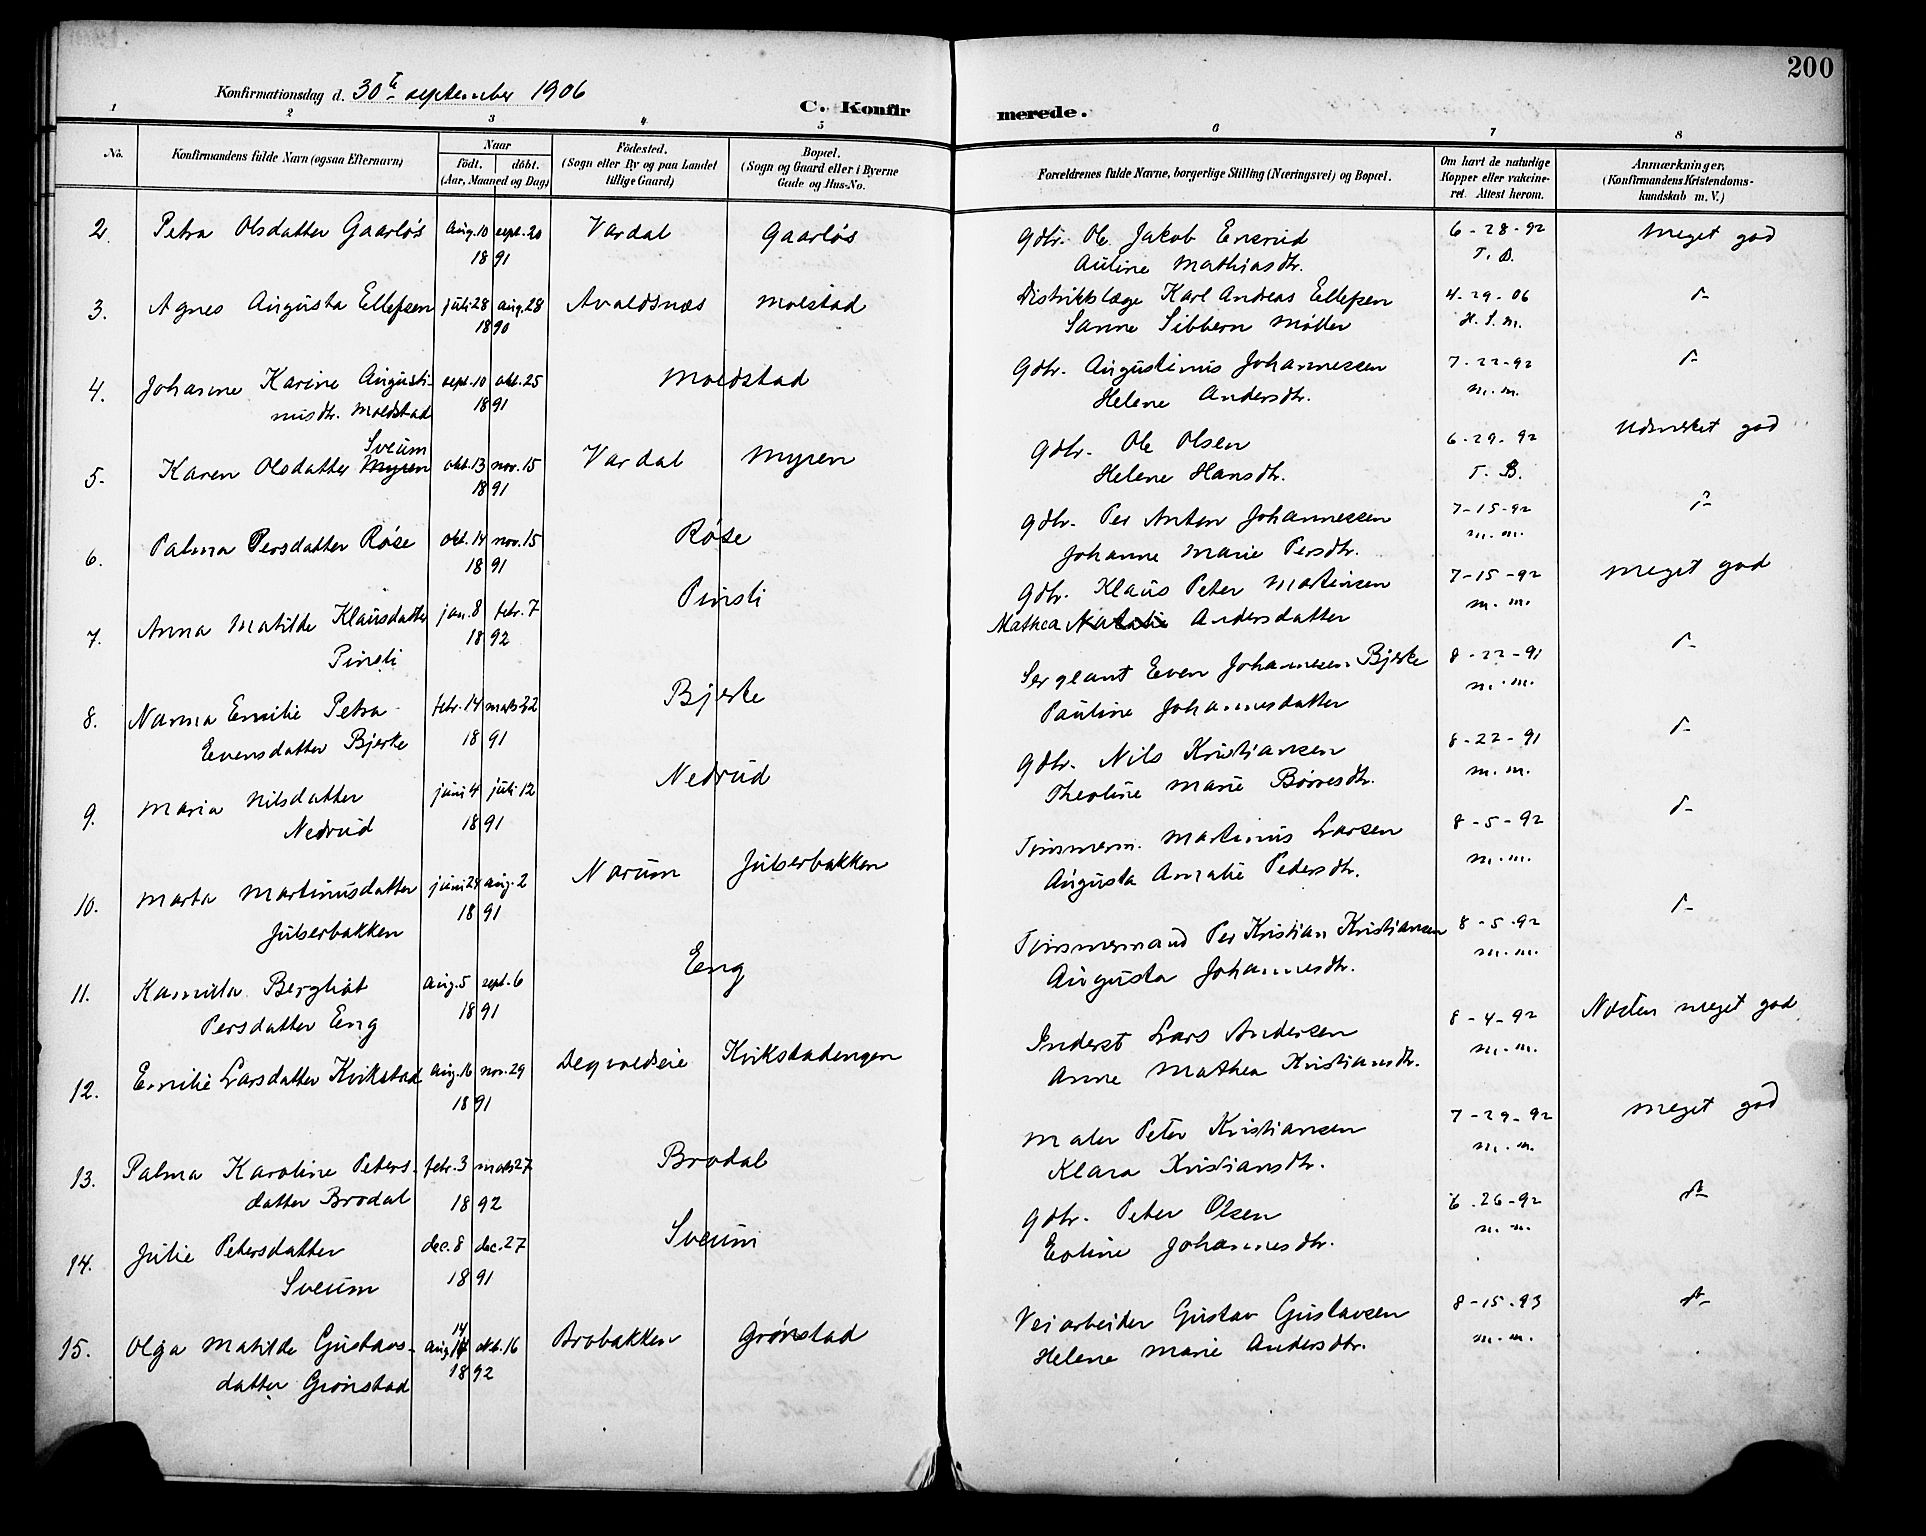 200
Konfirmationsdag d. 30te september 1906
C. Konfirmerede.
1 2 3 4 5 6 7 8
No.
Konfirmandens fulde Navn (ogsaa Efternavn)
Naar
födt. döbt.
(Aar, Maaned og Dag)
Födested.
(Sogn eller By og paa Landet
tillige Gaard)
Bopæl.
(Sogn og Gaard eller i Byerne
Gade og Hus-No.
Forældrenes fulde Navne, borgerlige Stilling (Næringsvei) og Bopæl.
Om havt de naturlige
Kopper eller vakcine-
ret. Attest herom.
Anmærkninger,
(Konfirmandens Kristendoms-
kundskab m. V.)
2. Petra Olsdatter Gaarløs aug. 10 sept. 20 Vardal Gaarløs Gdbr. Ole Jakob Ensrud 6-28-92 Meget god
1891 Auline Mathiasdtr. T. B.
3. Agnes Augusta Ellefsen juli 28 aug. 28 Avaldsnæs Molstad Distriktslæge Karl Andreas Ellefsen 4-29-06 d-
1890 Sanne Sibbern Møller H. S. M.
4. Johanne Karine Augusti- sept. 10 okt. 25 Moldstad Gdbr. Augustinus Johannessen 7-22-92 d-
nusdtr. Moldstad 1891 Helene Andersdtr. m. m.
Sveum
5. Karen Olsdatter Myren okt. 13 nov. 15 Vardal Myren Gdbr. Ole Olsen 6-29-92 Udmerket god
1891 Helene Hansdtr. T. B.
6. Palma Persdatter Røise okt. 14 nov. 15 Røise Gdbr. Per Anton Johannessen 7-15-92 d-
1891 Johanne Marie Persdtr. m. m.
7. Anna Matilde Klausdatter jan. 8 febr. 7 Pinsli Gdbr. Klaus Peter Martinsen 7-15-92 Meget god
Pinsli 1892 Mathea Natalie Andersdatter m. m.
8. Nanna Emilie Petra febr. 14 marts 22 Bjerke Sergeant Even Johannesen Bjerke 8-22-91 d-
Evensdatter Bjerke 1891 Pauline Johannesdatter m. m.
9. Maria Nilsdatter juni 4 juli 12 Nedrud Gdbr. Nils Kristiansen 8-22-91 d-
Nedrud 1891 Theoline Marie Børresdtr. m. m.
10. Marta Martinusdatter juni 28 aug. 2 Narum Julserbakken Timmerm. Martinus Larsen 8-5-92 d-
Julserbakken 1891 Augusta Amalie Pedersdtr. m. m.
11. Kamilla Berghat aug. 5 sept. 6 Eng Timmermand Per Kristian Kristiansen 8-5-92 d-
Persdatter Eng 1891 Augusta Johannesdtr. m. m.
12. Emilie Larsdatter Kvikstad aug. 16 nov. 29 Degvoldseie Kvikstadengen Inderst Lars Andersen 8-4-92 Næsten meget god
1891 Anne Mathea Kristiansdtr. m. m.
13. Palma Karoline Peters- febr. 3 marts 27 Brodal Maler Peter Kristiansen 7-29-92 Meget god
datter Brodal 1892 Klara Kristiansdtr. m. m.
14. Julie Petersdatter dec. 8 dec. 27 Sveum Gdbr. Peter Olsen 6-26-92 d-
Sveum 1891 Eoline Johannesdtr. m. m.
15. Olga Matilde Gustavs- aug. 14 okt. 16 Brobakken Grønstad Veiarbeider Gustav Gustavsen 8-15-93 d-
datter Grønstad 1892 Helene Marie Andersdtr. m. m.